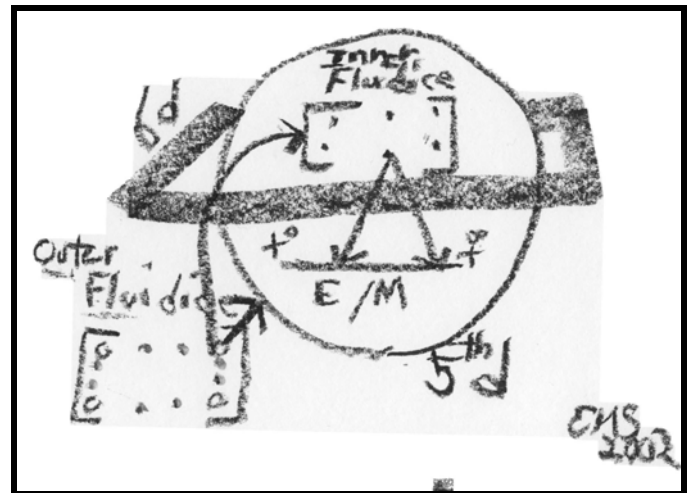 Inner
Fluidice
6d
Outer
Fluidics
t°
E/M
5th d
EMS
2002